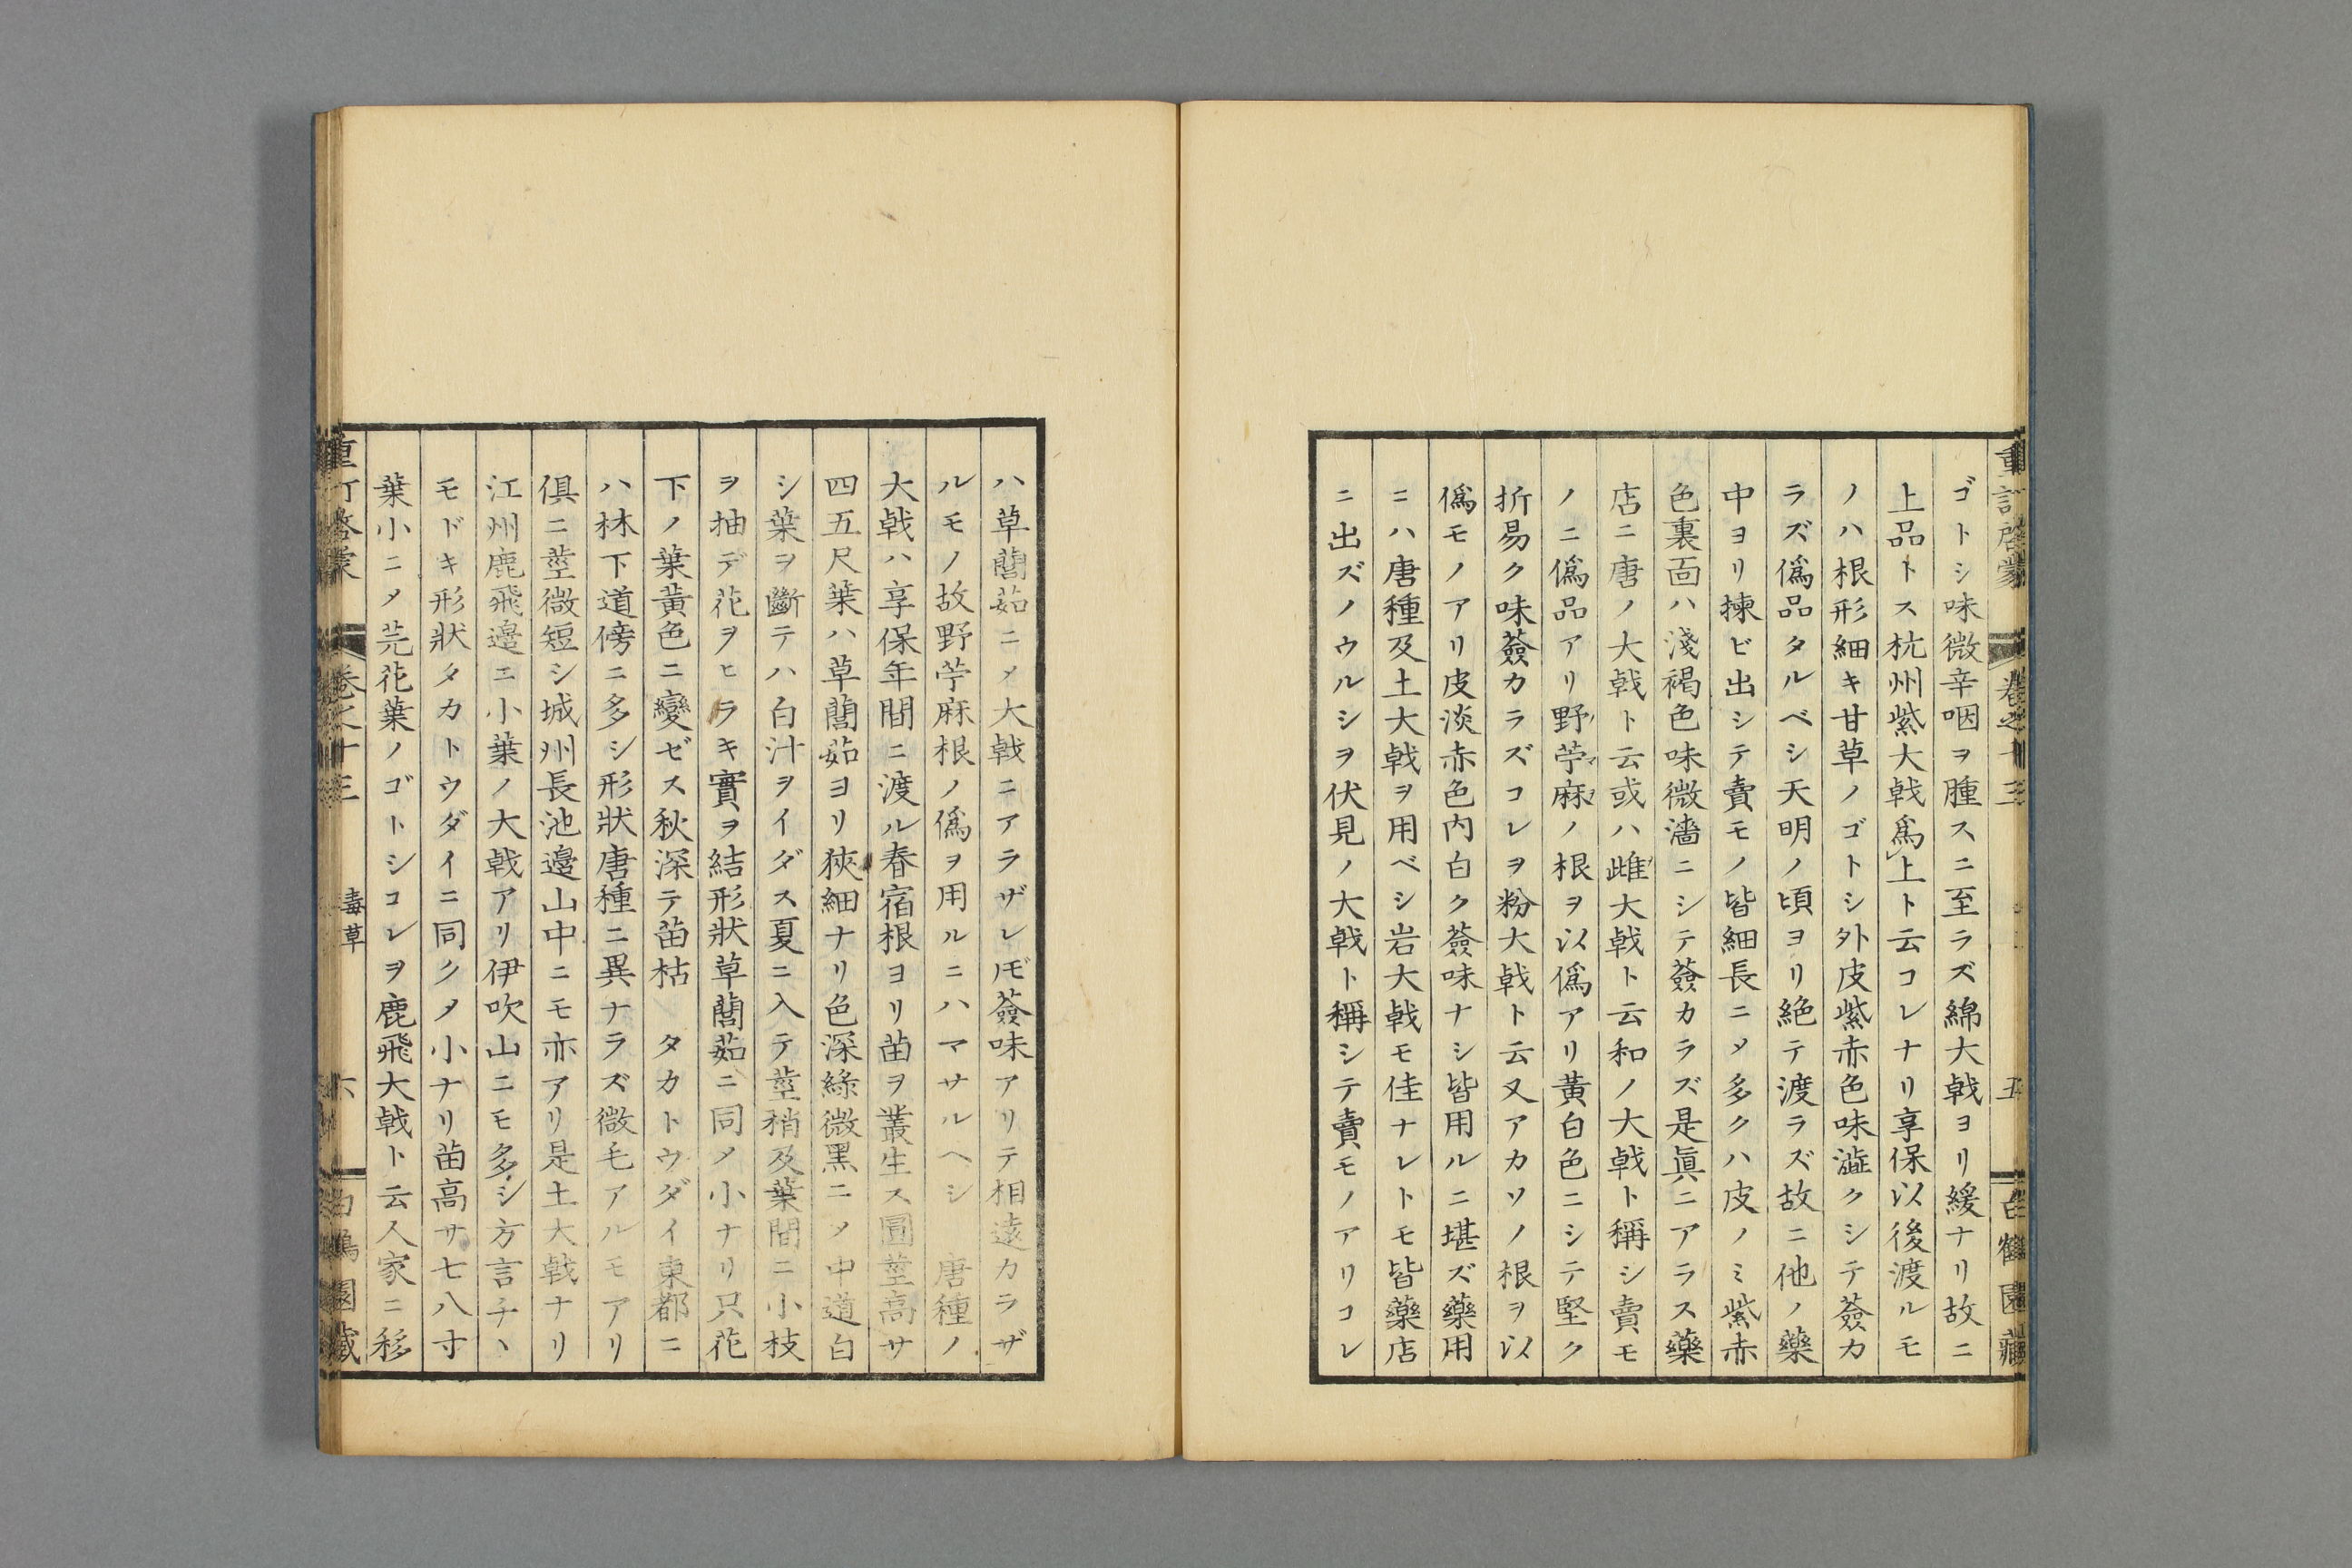 重訂啓蒙 卷之十三 五 白鶴園藏
ゴトシ味微辛咽ヲ腫スニ至ラズ綿大戟ヨリ緩ナリ故ニ
上品トス杭州紫大戟爲上ト云コレナリ享保以後渡ルモ
ノハ根形細キ甘草ノゴトシ外皮紫赤色味澁クシテ薟カ
ラズ僞品タルベシ天明ノ頃ヨリ絶テ渡ラズ故ニ他ノ藥
中ヨリ揀ビ出シテ賣モノ皆細長ニメ多クハ皮ノミ紫赤
色裏面ハ淺褐色味微濇ニシテ薟カラズ是眞ニアラス藥
店ニ唐ノ大戟ト云或ハ雌大戟ト云和ノ大戟ト稱シ賣モ
ノニ僞品アリ野苧麻ノ根ヲ以僞アリ黄白色ニシテ堅ク
折易ク味薟カラズコレヲ粉大戟ト云又アカソノ根ヲ以
僞モノアリ皮淡赤色内白ク薟味ナシ皆用ルニ堪ズ藥用
ニハ唐種及土大戟ヲ用ベシ岩大戟モ佳ナレトモ皆藥店
ニ出ズノウルシヲ伏見ノ大戟ト稱シテ賣モノアリコレ
ハ草䕡茹ニメ大戟ニアラザレ𪜈薟味アリテ相遠カラザ
ルモノ故野苧麻根ノ僞ヲ用ルニハマサルヘシ 唐種ノ
大戟ハ享保年間ニ渡ル春宿根ヨリ苗ヲ叢生ス圓莖高サ
四五尺葉ハ草䕡茹ヨリ狹細ナリ色深緑微黒ニメ中道白
シ葉ヲ斷テハ白汁ヲイダス夏ニ入テ莖稍及葉間ニ小枝
ヲ抽デ花ヲヒラキ實ヲ結形狀草䕡茹ニ同メ小ナリ只花
下ノ葉黄色ニ變ゼス秋深テ苗枯 タカトウダイ東都ニ
ハ林下道傍ニ多シ形狀唐種ニ異ナラズ微毛アルモアリ
倶ニ莖微短シ城州長池邉山中ニモ亦アリ是土大戟ナリ
江州鹿飛邉ニ小葉ノ大戟アリ伊吹山ニモ多シ方言チヽ
モドキ形狀タカトウダイニ同クメ小ナリ苗高サ七八寸
葉小ニメ芫花葉ノゴトシコレヲ鹿飛大戟ト云人家ニ移
重訂啓蒙 卷之十三 毒草 六 白鶴園藏